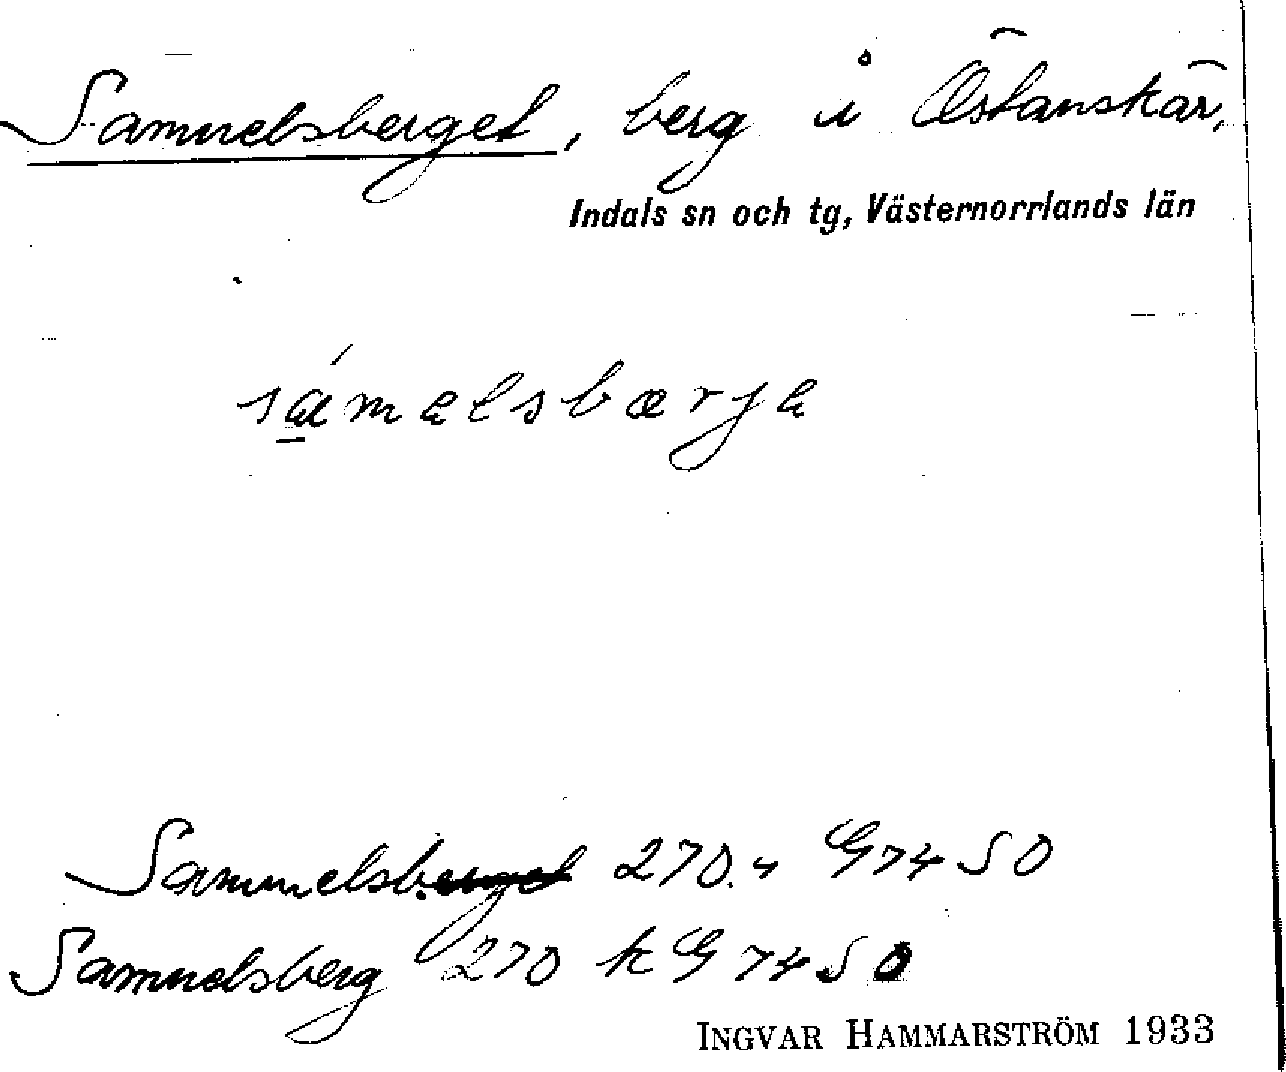 Samuelsberget, berg i Östanskär,
Indals sn och tg, Västernorrlands län
sámelsbærje
Samuelsb. 270. G 74 SO
Samuelsberg 270 k G 74 SO
INGVAR HAMMARSTRÖM 1933